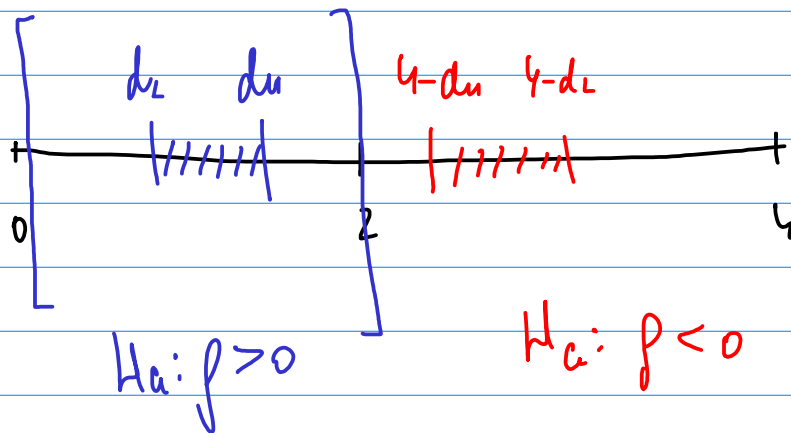 dL du 4-du 4-dL
0 2 4
Ha: ρ>0 Ha: ρ<0